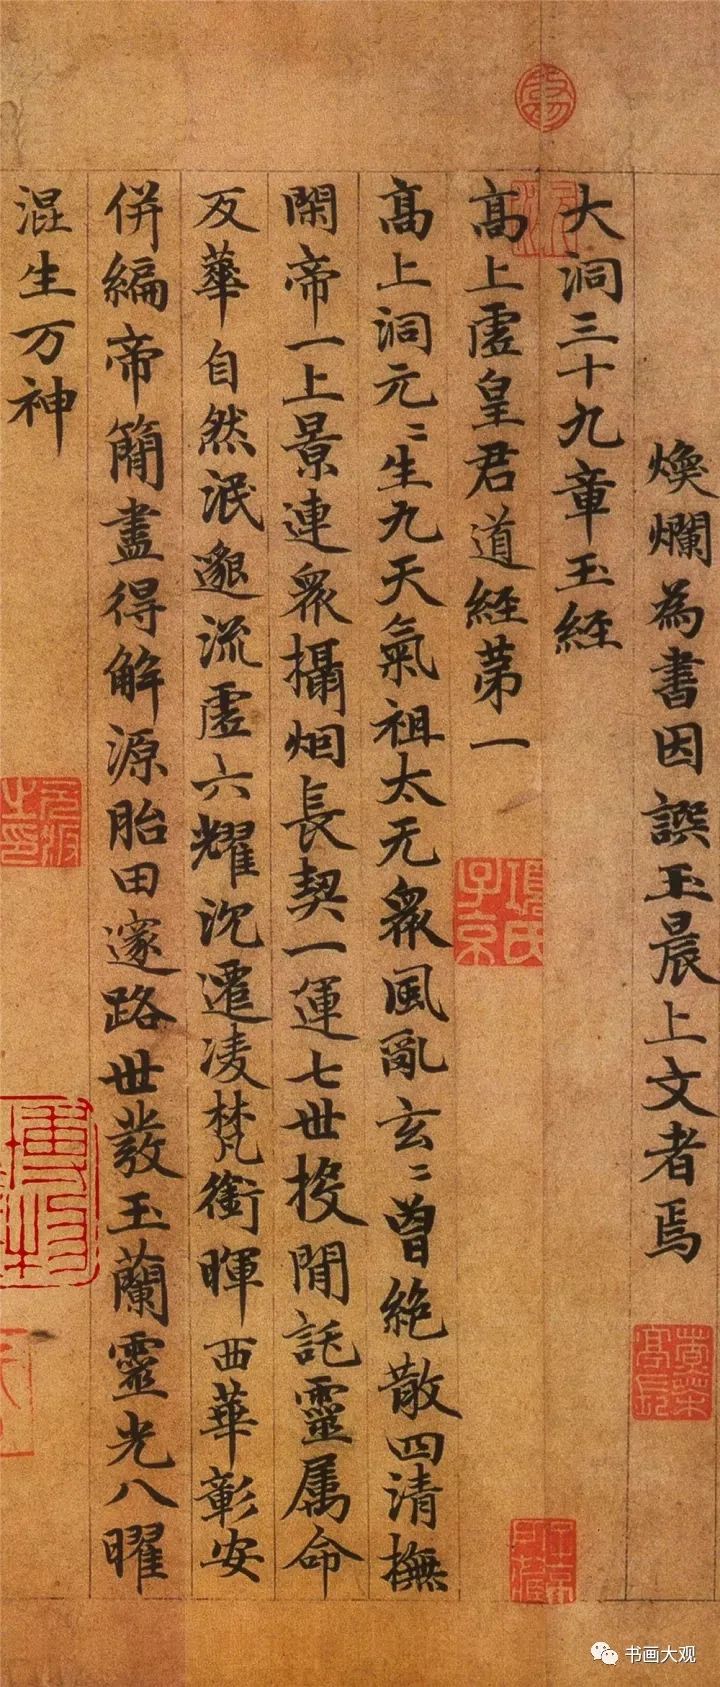 煥爛為書因譔玉晨上文者焉
大洞三十九章玉経
髙上虛皇君道経苐一
髙上洞元〻生九天氣祖太无衆風亂玄〻曽絶散四清撫
閑帝一上景連衆攝烟長契一運七世投閒託靈属命
反華自然泯邈流虛六耀沉遷凌梵銜暉西華彰安
併編帝簡盡得解源胎田邃路世發玉蘭靈光八曜
混生万神
項氏子京
书画大观